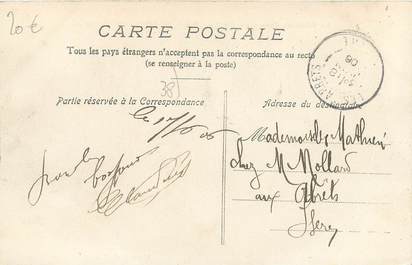 20€
CARTE POSTALE
Tous les pays étrangers n'acceptent pas la correspondance au recto
(se renseigner à la poste)
38
Partie réservée à la Correspondance
Adresse du destinataire
le 17/6 06
bonjour
Mademoiselle Mathieu
Chez M Mollard
aux Abrets
Isère